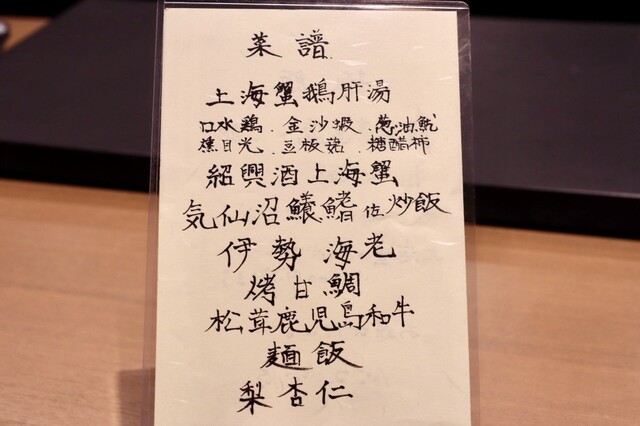 菜譜
上海蟹鵝肝湯
口水鶏．金沙蝦．葱油魷
燻目光．豆板菇．糖醋柿
紹興酒上海蟹
気仙沼鱶鰭佐炒飯
伊勢海老
烤甘鯛
松茸鹿児島和牛
麺飯
梨杏仁